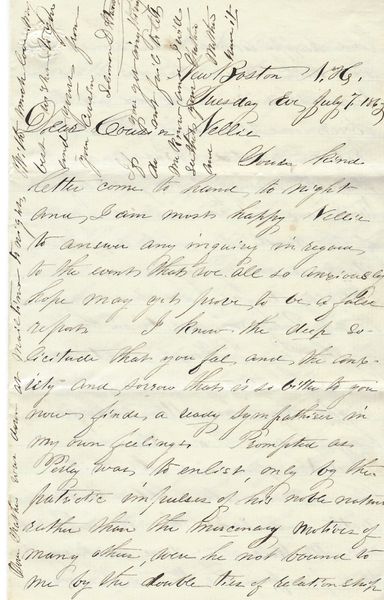 New Boston N.H.
Tuesday Eve July 7. 186
Dear Cousin Nellie
Your kind
letter come to hand to night
and I am most happy Nellie
to answer any inquiry in regard
to the events that we all so anxiously
hope may yet prove to be a false
report. I know the deep so-
licitude that you feel and the anx-
iety and sorrow that is so bitter to you
now, finds a ready sympathiser in
my own feelings. Prompted as
was to enlist only by the
patriotic impulses of his noble nature
rather than the mercinary motives of
many others, were he not bound to
me by the double ties of relationship
With much love
and
your Cousin
If you get any
do not fail to let
me know
and
Your Father was down at mail time to night